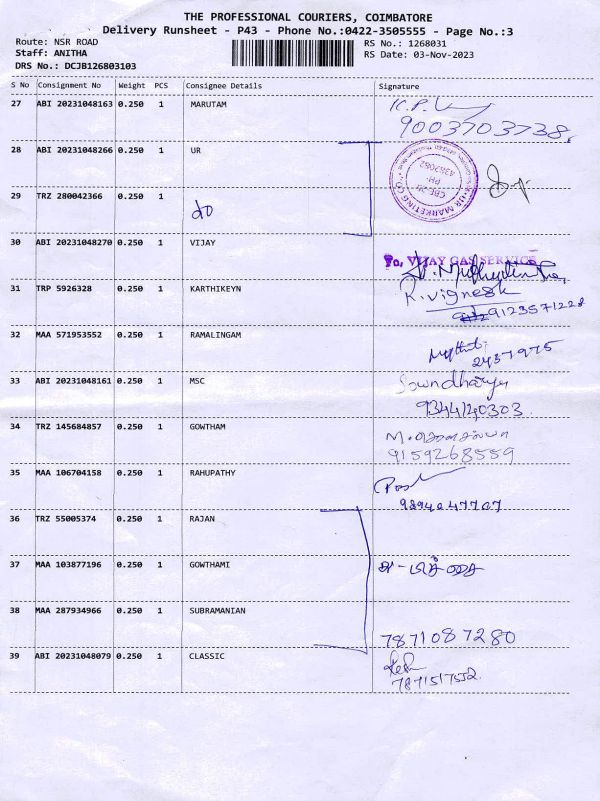 THE PROFESSIONAL COURIERS, COIMBATORE
Delivery Runsheet - P43 - Phone No.:0422-3505555 - Page No.:3
Route: NSR ROAD RS No.: 1268031
Staff: ANITHA RS Date: 03-Nov-2023
DRS No.: DCJB126803103
S No Consignment No Weight PCS Consignee Details Signature
27 ABI 20231048163 0.250 1 MARUTAM
9003703738
28 ABI 20231048266 0.250 1 UR
UR MARKETING CO
CBE-25
PH:
4382082
29 TRZ 280042366 0.250 1 do
30 ABI 20231048270 0.250 1 VIJAY VIJAY GAS SERVICE
31 TRP 5926328 0.250 1 KARTHIKEYN R. Vignesh
9123571228
32 MAA 571953552 0.250 1 RAMALINGAM
2437975
33 ABI 20231048161 0.250 1 MSC Soundharya
9344140303.
34 TRZ 145684857 0.250 1 GOWTHAM
9159268559
35 MAA 106704158 0.250 1 RAHUPATHY
9894047707
36 TRZ 55005374 0.250 1 RAJAN
37 MAA 103877196 0.250 1 GOWTHAMI
38 MAA 287934966 0.250 1 SUBRAMANIAN
7871087280
39 ABI 20231048079 0.250 1 CLASSIC
7871517552.